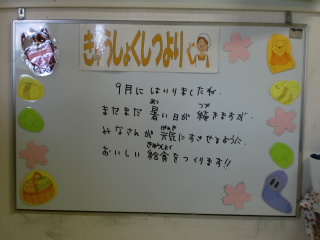 きゅうしょくしつより
9月に はいりましたね。
まだまだ 暑い日が 続きますが、
あつ つづ
みなさんが 元気にすごせるように、
げんき
おいしい 給食をつくります!!
きゅうしょく